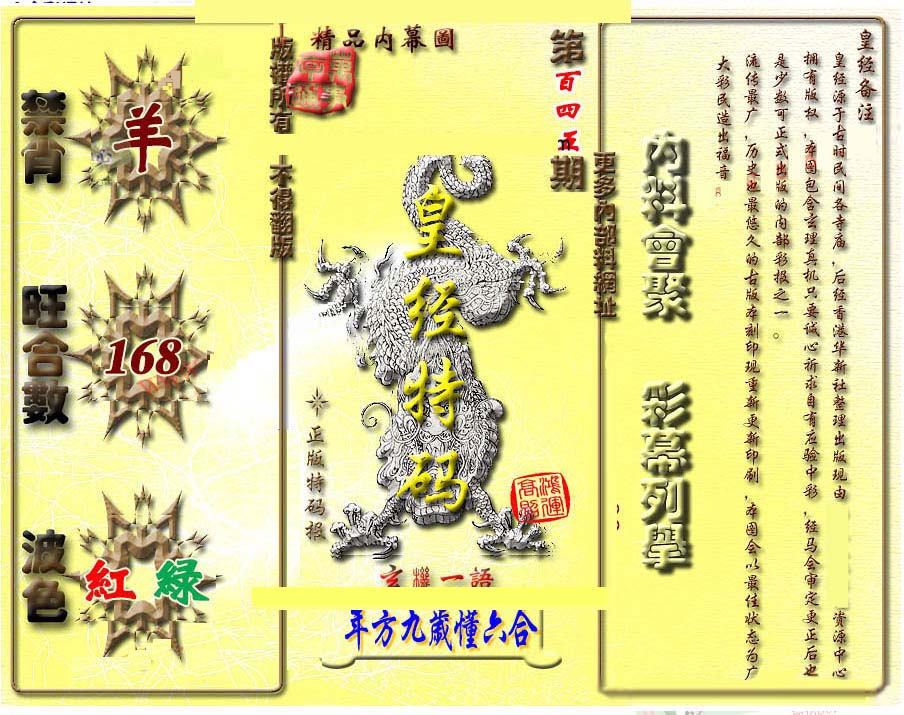 皇经备注
皇经源于古时民间各寺庙，后经香港华新社整理出版现由 资源中心
拥有版权，本图包含玄理真机只要诚心祈求自有应验中彩，经马会审定更正后也
是少数可正式出版的内部彩报之一。
流传最广，历史也最悠久的古版本刻印现重新更新印刷，本图会以最佳状态为广
大彩民造出福音
内料會聚 彩幕列舉
更多內部料網址
第百四五期
精品内幕圖
版權所有 不得翻版
皇经特码
正版特码报
鴻運高照
玄機一語
年方九歲懂六合
禁肖
羊
旺合數
168
波色
紅 綠